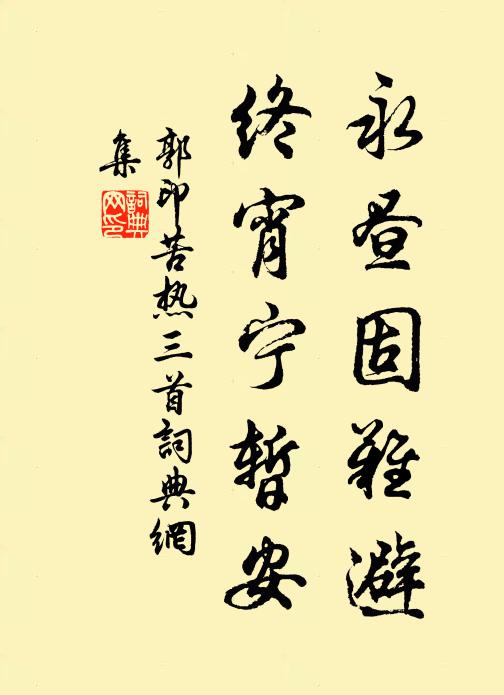 永昼固難避
终宵宁暫安
郭印苦热三首詞典網
集
詞典
网印